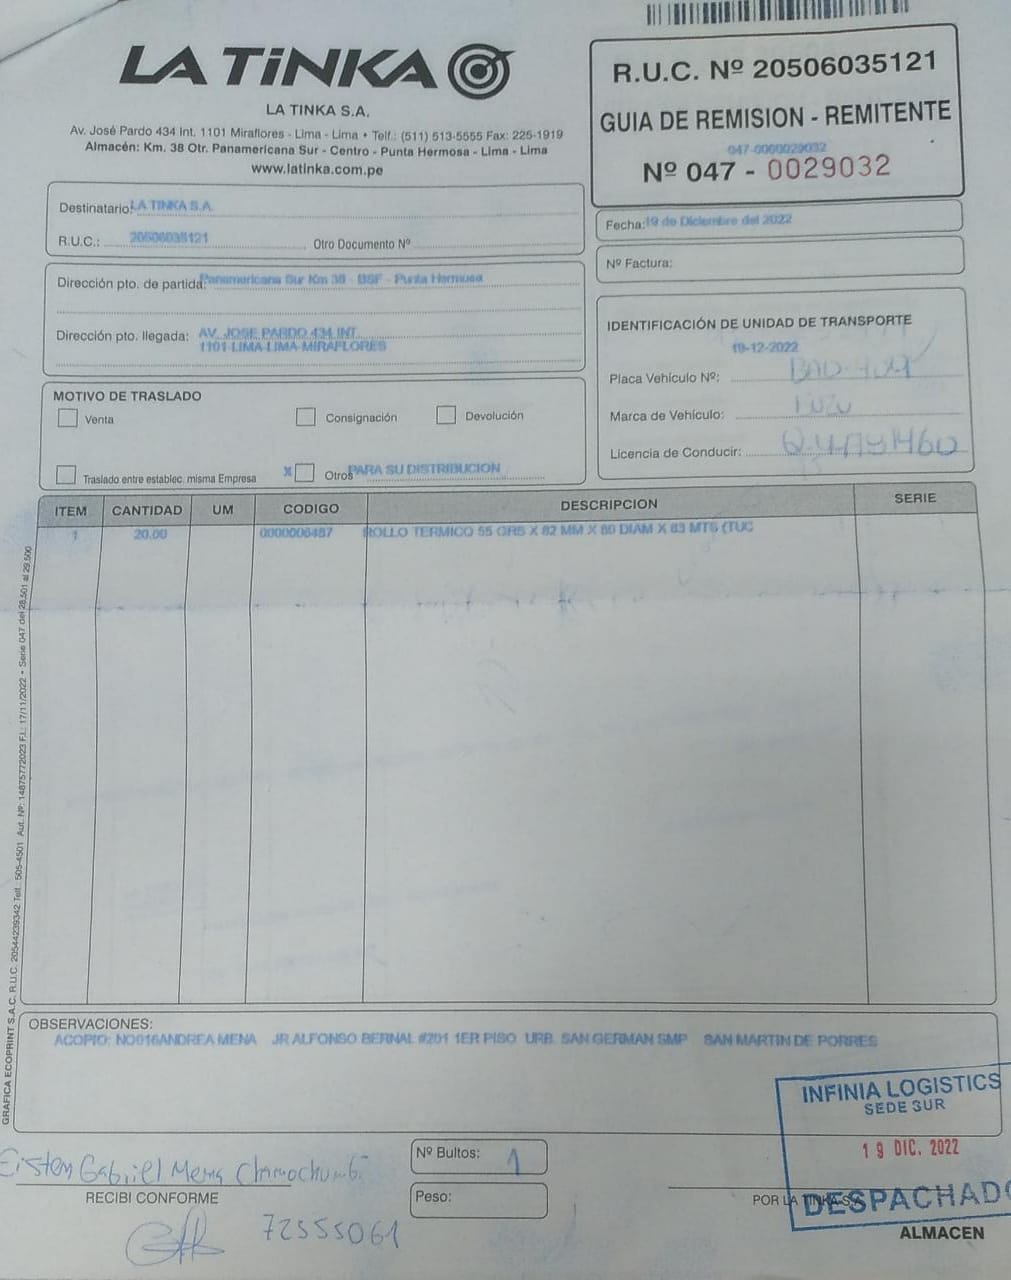 LA TiNKA
LA TINKA S.A.
Av. José Pardo 434 Int. 1101 Miraflores - Lima - Lima • Telf.: (511) 513-5555 Fax: 225-1919
Almacén: Km. 38 Otr. Panamericana Sur - Centro - Punta Hermosa - Lima - Lima
www.latinka.com.pe
R.U.C. Nº 20506035121
GUIA DE REMISION - REMITENTE
047-0000029032
Nº 047 - 0029032
Destinatario: LA TINKA S.A.
R.U.C.: 20506035121 Otro Documento Nº
Fecha: 19 de Diciembre del 2022
Nº Factura:
Dirección pto. de partida: Panamericana Sur Km 38 - BSF - Punta Hermosa
Dirección pto. llegada: AV. JOSE PARDO 434 INT.
1101-LIMA-LIMA-MIRAFLORES
IDENTIFICACIÓN DE UNIDAD DE TRANSPORTE
19-12-2022
Placa Vehículo Nº:
Marca de Vehículo:
Licencia de Conducir:
MOTIVO DE TRASLADO
Venta Consignación Devolución
Traslado entre establec. misma Empresa X Otros PARA SU DISTRIBUCION
ITEM CANTIDAD UM CODIGO DESCRIPCION SERIE
1 20.00 0000006487 ROLLO TERMICO 55 GRS X 82 MM X 80 DIAM X 83 MTS (TUC
GRAFICA ECOPRINT S.A.C. R.U.C. 20544239342 Telf.: 505-4501 Aut. Nº: 14875772023 F.I.: 17/11/2022 • Serie 047 del 28,501 al 29,500
OBSERVACIONES:
ACOPIO: NO016ANDREA MENA JR ALFONSO BERNAL #201 1ER PISO URB. SAN GERMAN SMP SAN MARTIN DE PORRES
INFINIA LOGISTICS
SEDE SUR
19 DIC. 2022
DESPACHADO
ALMACEN
Gabriel Mena Chamochumbi
RECIBI CONFORME
72555061
Nº Bultos: 1
Peso:
POR LA TINKA S.A.